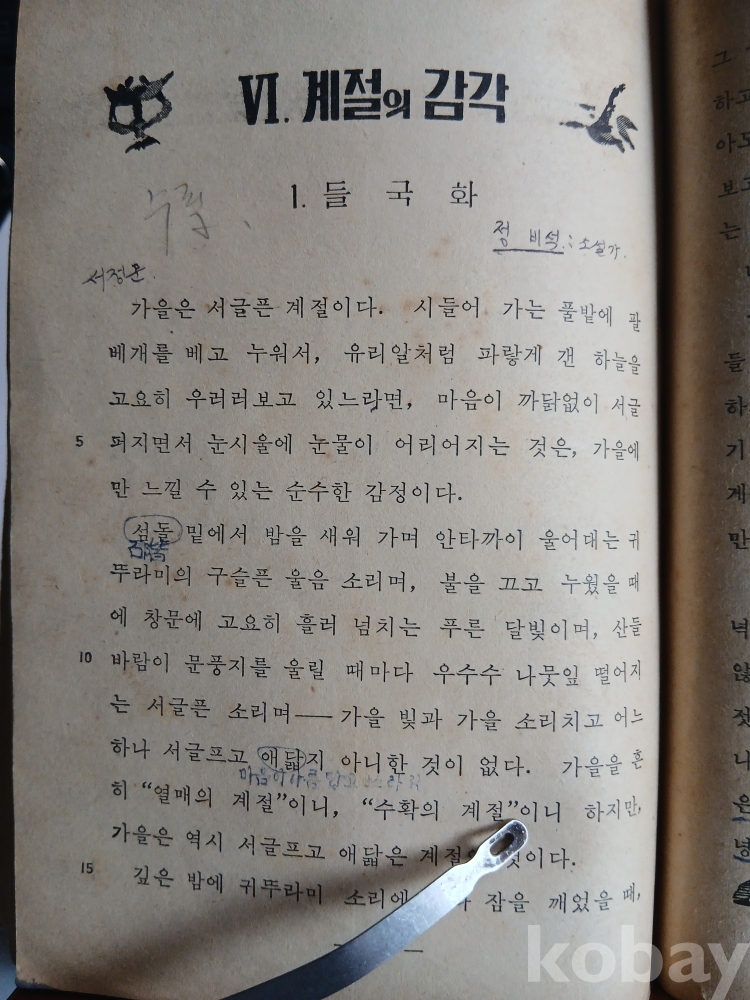 Ⅵ. 계절의 감각
1. 들국화
정비석 : 소설가.
가을은 서글픈 계절이다. 시들어 가는 풀밭에 팔
베개를 베고 누워서, 유리알처럼 파랗게 갠 하늘을
고요히 우러러보고 있느라면, 마음이 까닭없이 서글
5 퍼지면서 눈시울에 눈물이 어리어지는 것은, 가을에
만 느낄 수 있는 순수한 감정이다.
섬돌 밑에서 밤을 새워 가며 안타까이 울어대는 귀
뚜라미의 구슬픈 울음 소리며, 불을 끄고 누웠을 때
에 창문에 고요히 흘러 넘치는 푸른 달빛이며, 산들
10 바람이 문풍지를 울릴 때마다 우수수 나뭇잎 떨어지
는 서글픈 소리며── 가을 빛과 가을 소리치고 어느
하나 서글프고 애닯지 아니한 것이 없다. 가을을 흔
히 “열매의 계절”이니, “수확의 계절”이니 하지만,
가을은 역시 서글프고 애닯은 계절 것이다.
15 깊은 밤에 귀뚜라미 소리에 잠을 깨었을 때,
그
하고
아도
보고
는
들
하
기
계
만
녁
않
젓
나
은
넝
kobay